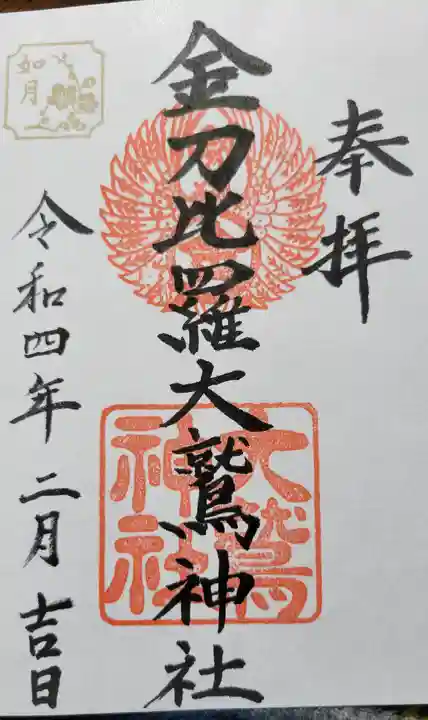 奉拝
金刀比羅大鷲神社
大鷲神社
如月
令和四年二月吉日